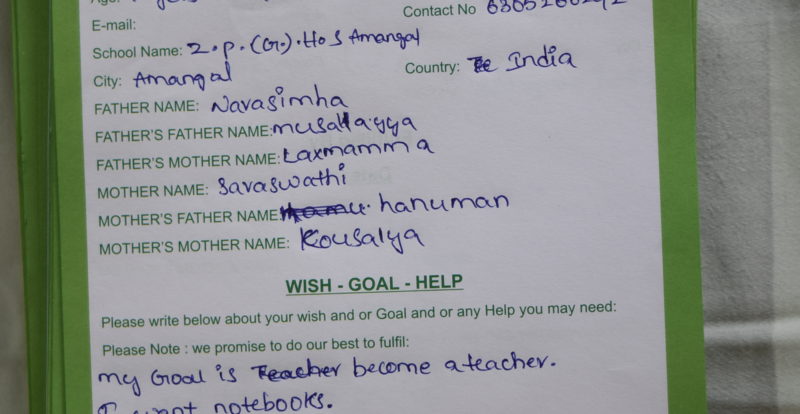 Contact No
E-mail:
School Name: Z.P.(G).H S Amangal
City: Amangal Country: India
FATHER NAME: Narasimha
FATHER'S FATHER NAME: musallayya
FATHER'S MOTHER NAME: Laxmamma
MOTHER NAME: Saraswathi
MOTHER'S FATHER NAME: hanuman
MOTHER'S MOTHER NAME: Kousalya
WISH - GOAL - HELP
Please write below about your wish and or Goal and or any Help you may need:
Please Note : we promise to do our best to fulfil:
my Goal is Teacher become a teacher.
I want notebooks.